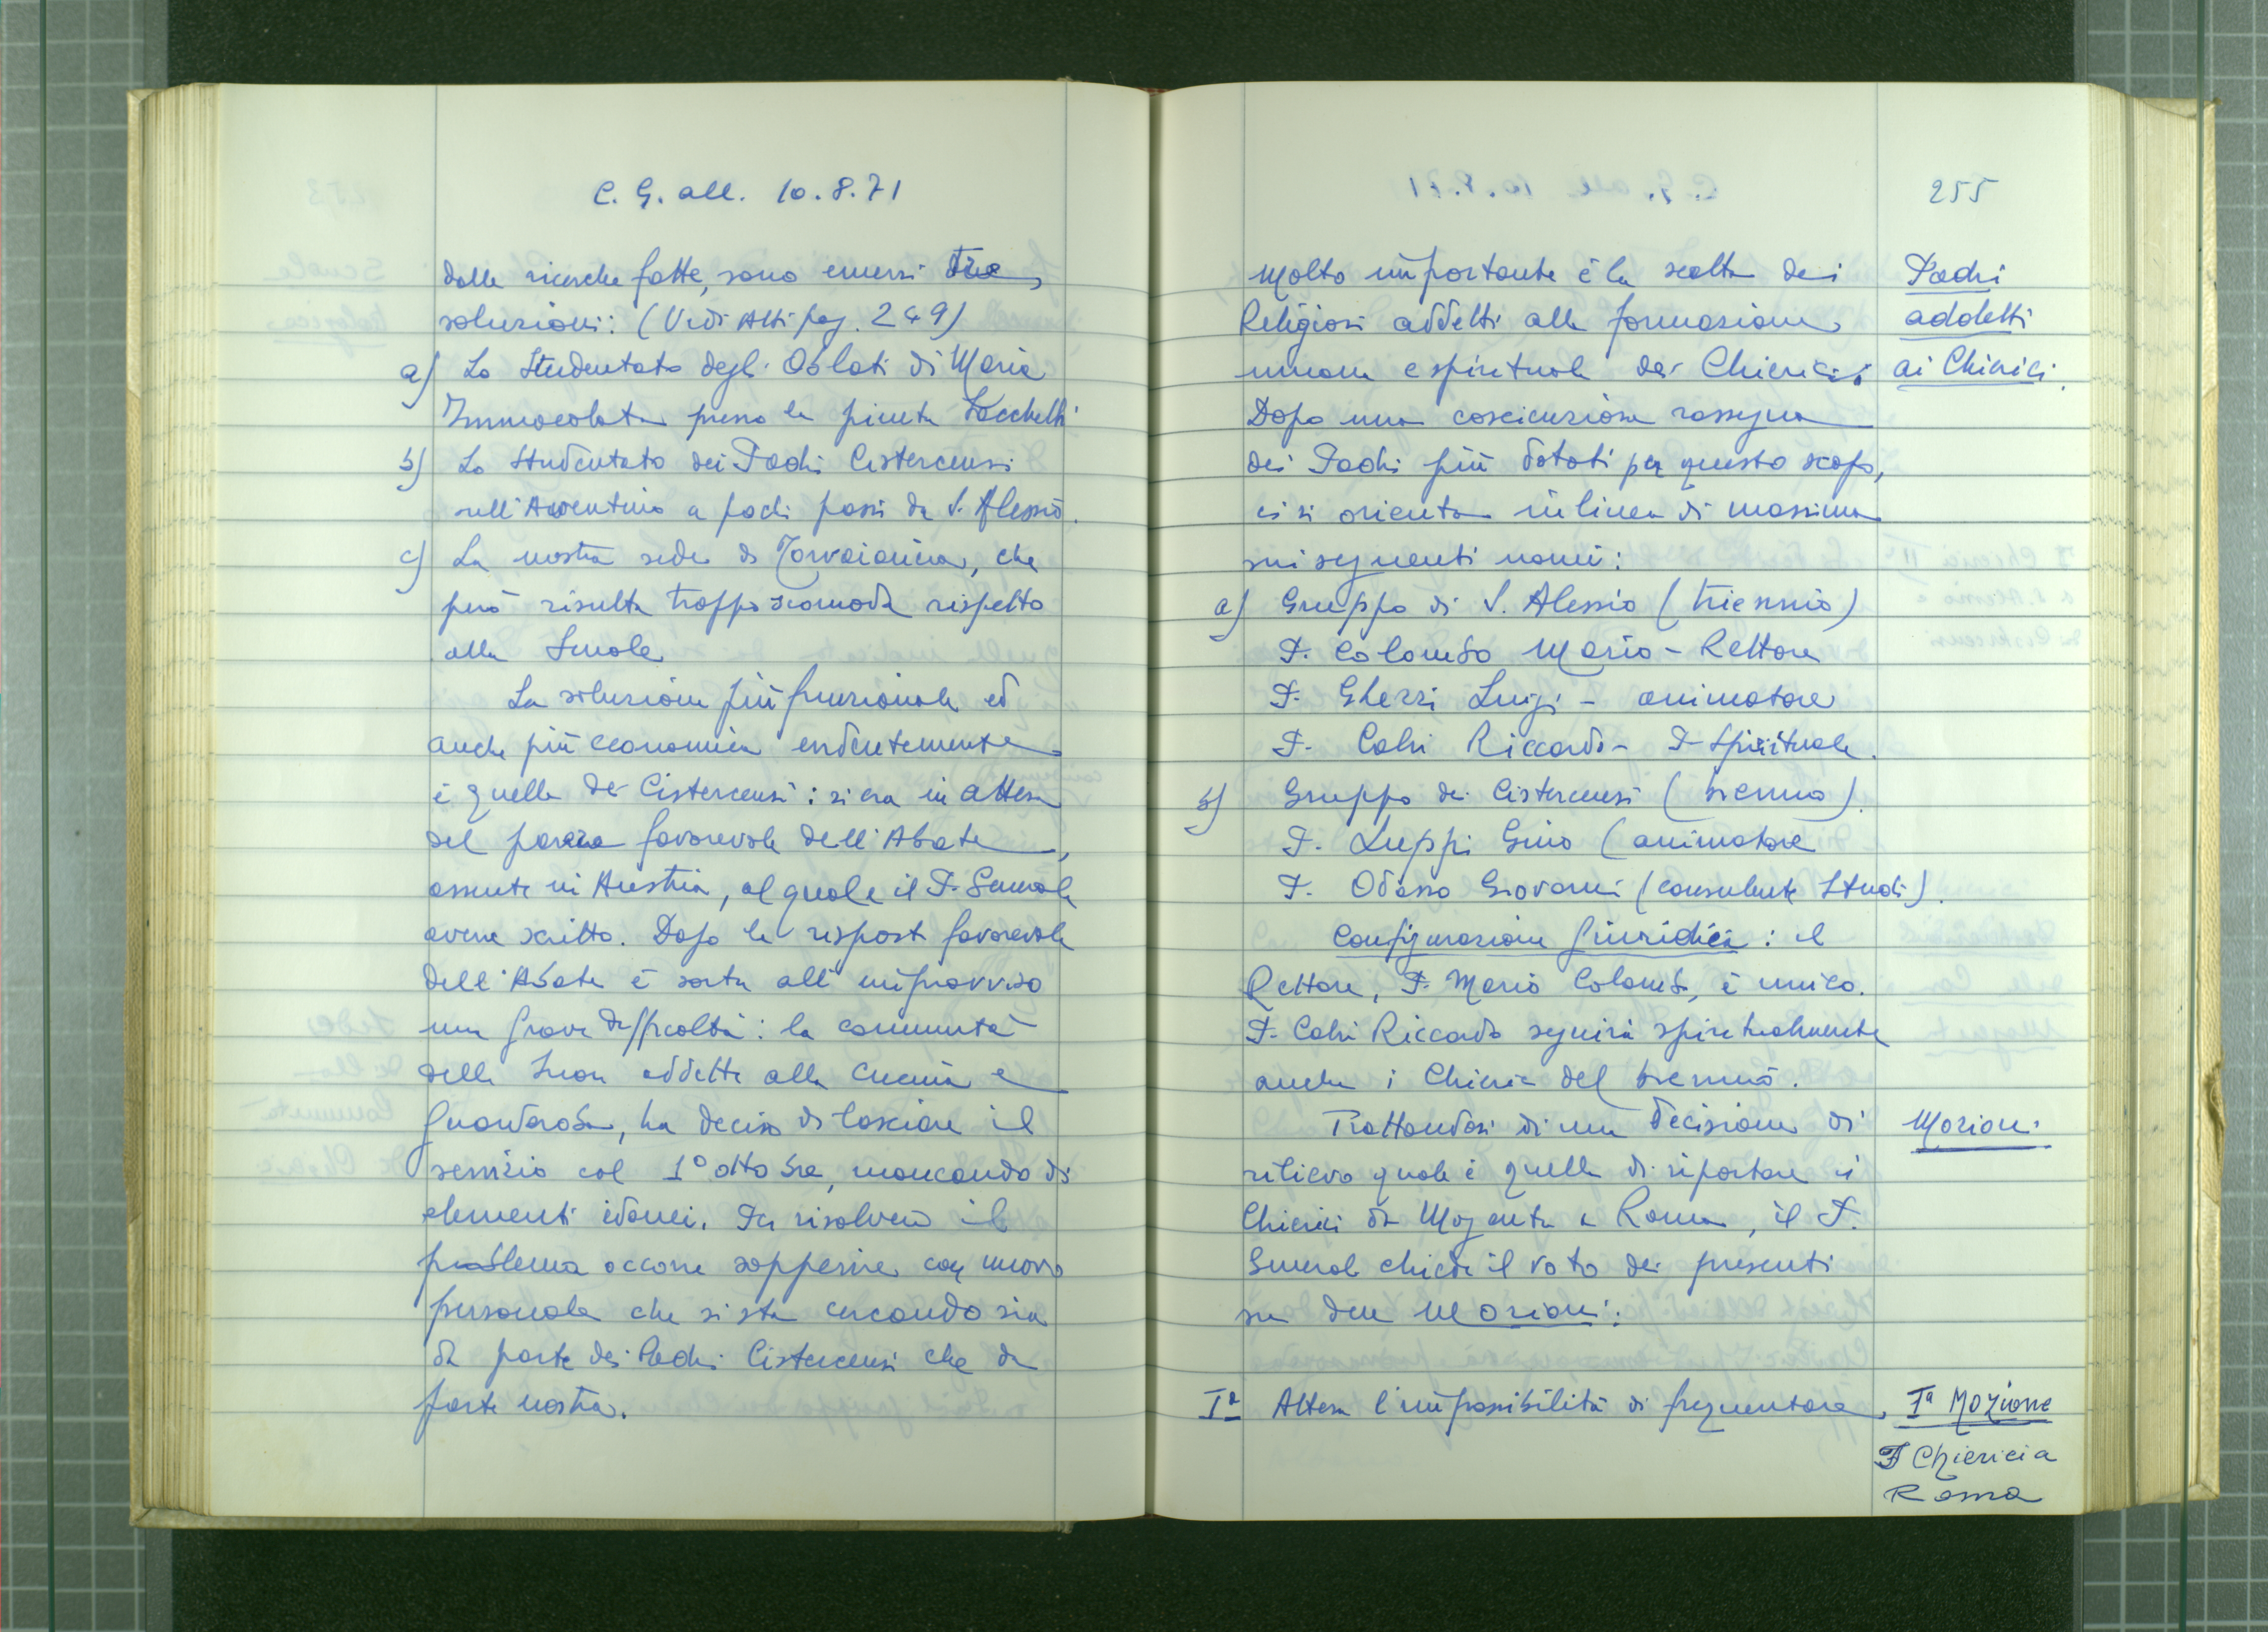 C. G. all. 10.8.71
dalle ricerche fatte, sono emersi tre
soluzioni: (Vedi Atti pag. 249)
a) Lo Studentato degli Oblati di Maria
Immacolata presso la pineta Sacchetti
b) Lo Studentato dei Padri Cistercensi
sull'Aventino a pochi passi da S. Alessio.
c) La nostra sede di Torvaianica, che
però risulta troppo scomoda rispetto
alla Scuola
La soluzione più funzionale ed
anche più economica evidentemente
è quella dei Cistercensi: si era in attesa
del parere favorevole dell'Abate,
assente in Austria, al quale il P. Generale
aveva scritto. Dopo la risposta favorevole
dell'Abate è sorta all'improvviso
una grave difficoltà: la comunità
delle Suore addette alla cucina e
guardaroba, ha deciso di lasciare il
servizio col 1° ottobre, mancando di
elementi idonei. Per risolvere il
problema occorre sopperire con nuovo
personale che si sta cercando sia
da parte dei Padri Cistercensi che da
parte nostra.
255
Molto importante è la scelta dei
Religiosi addetti alla formazione
umana e spirituale dei Chierici.
Dopo una coscienziosa rassegna
dei Padri più dotati per questo scopo,
ci si orienta in linea di massima
sui seguenti nomi:
a) Gruppo di S. Alessio (triennio)
P. Colombo Mario - Rettore
P. Ghezzi Luigi - animatore
P. Calvi Riccardo - P. Spirituale.
b) Gruppo dei Cistercensi (biennio).
P. Luppi Gino (animatore
P. Odasso Giovanni (consulente Studi).
Configurazione Giuridica: il
Rettore, P. Mario Colombo, è unico.
P. Calvi Riccardo seguirà spiritualmente
anche i Chierici del biennio.
Trattandosi di una decisione di
rilievo quale è quella di riportare i
Chierici da Magenta a Roma, il P.
Generale chiede il voto dei presenti
su due Mozioni:
Iª Attesa l'impossibilità di frequentare
Padri
addetti
ai Chierici.
Mozioni
Iª Mozione
I Chierici a
Roma